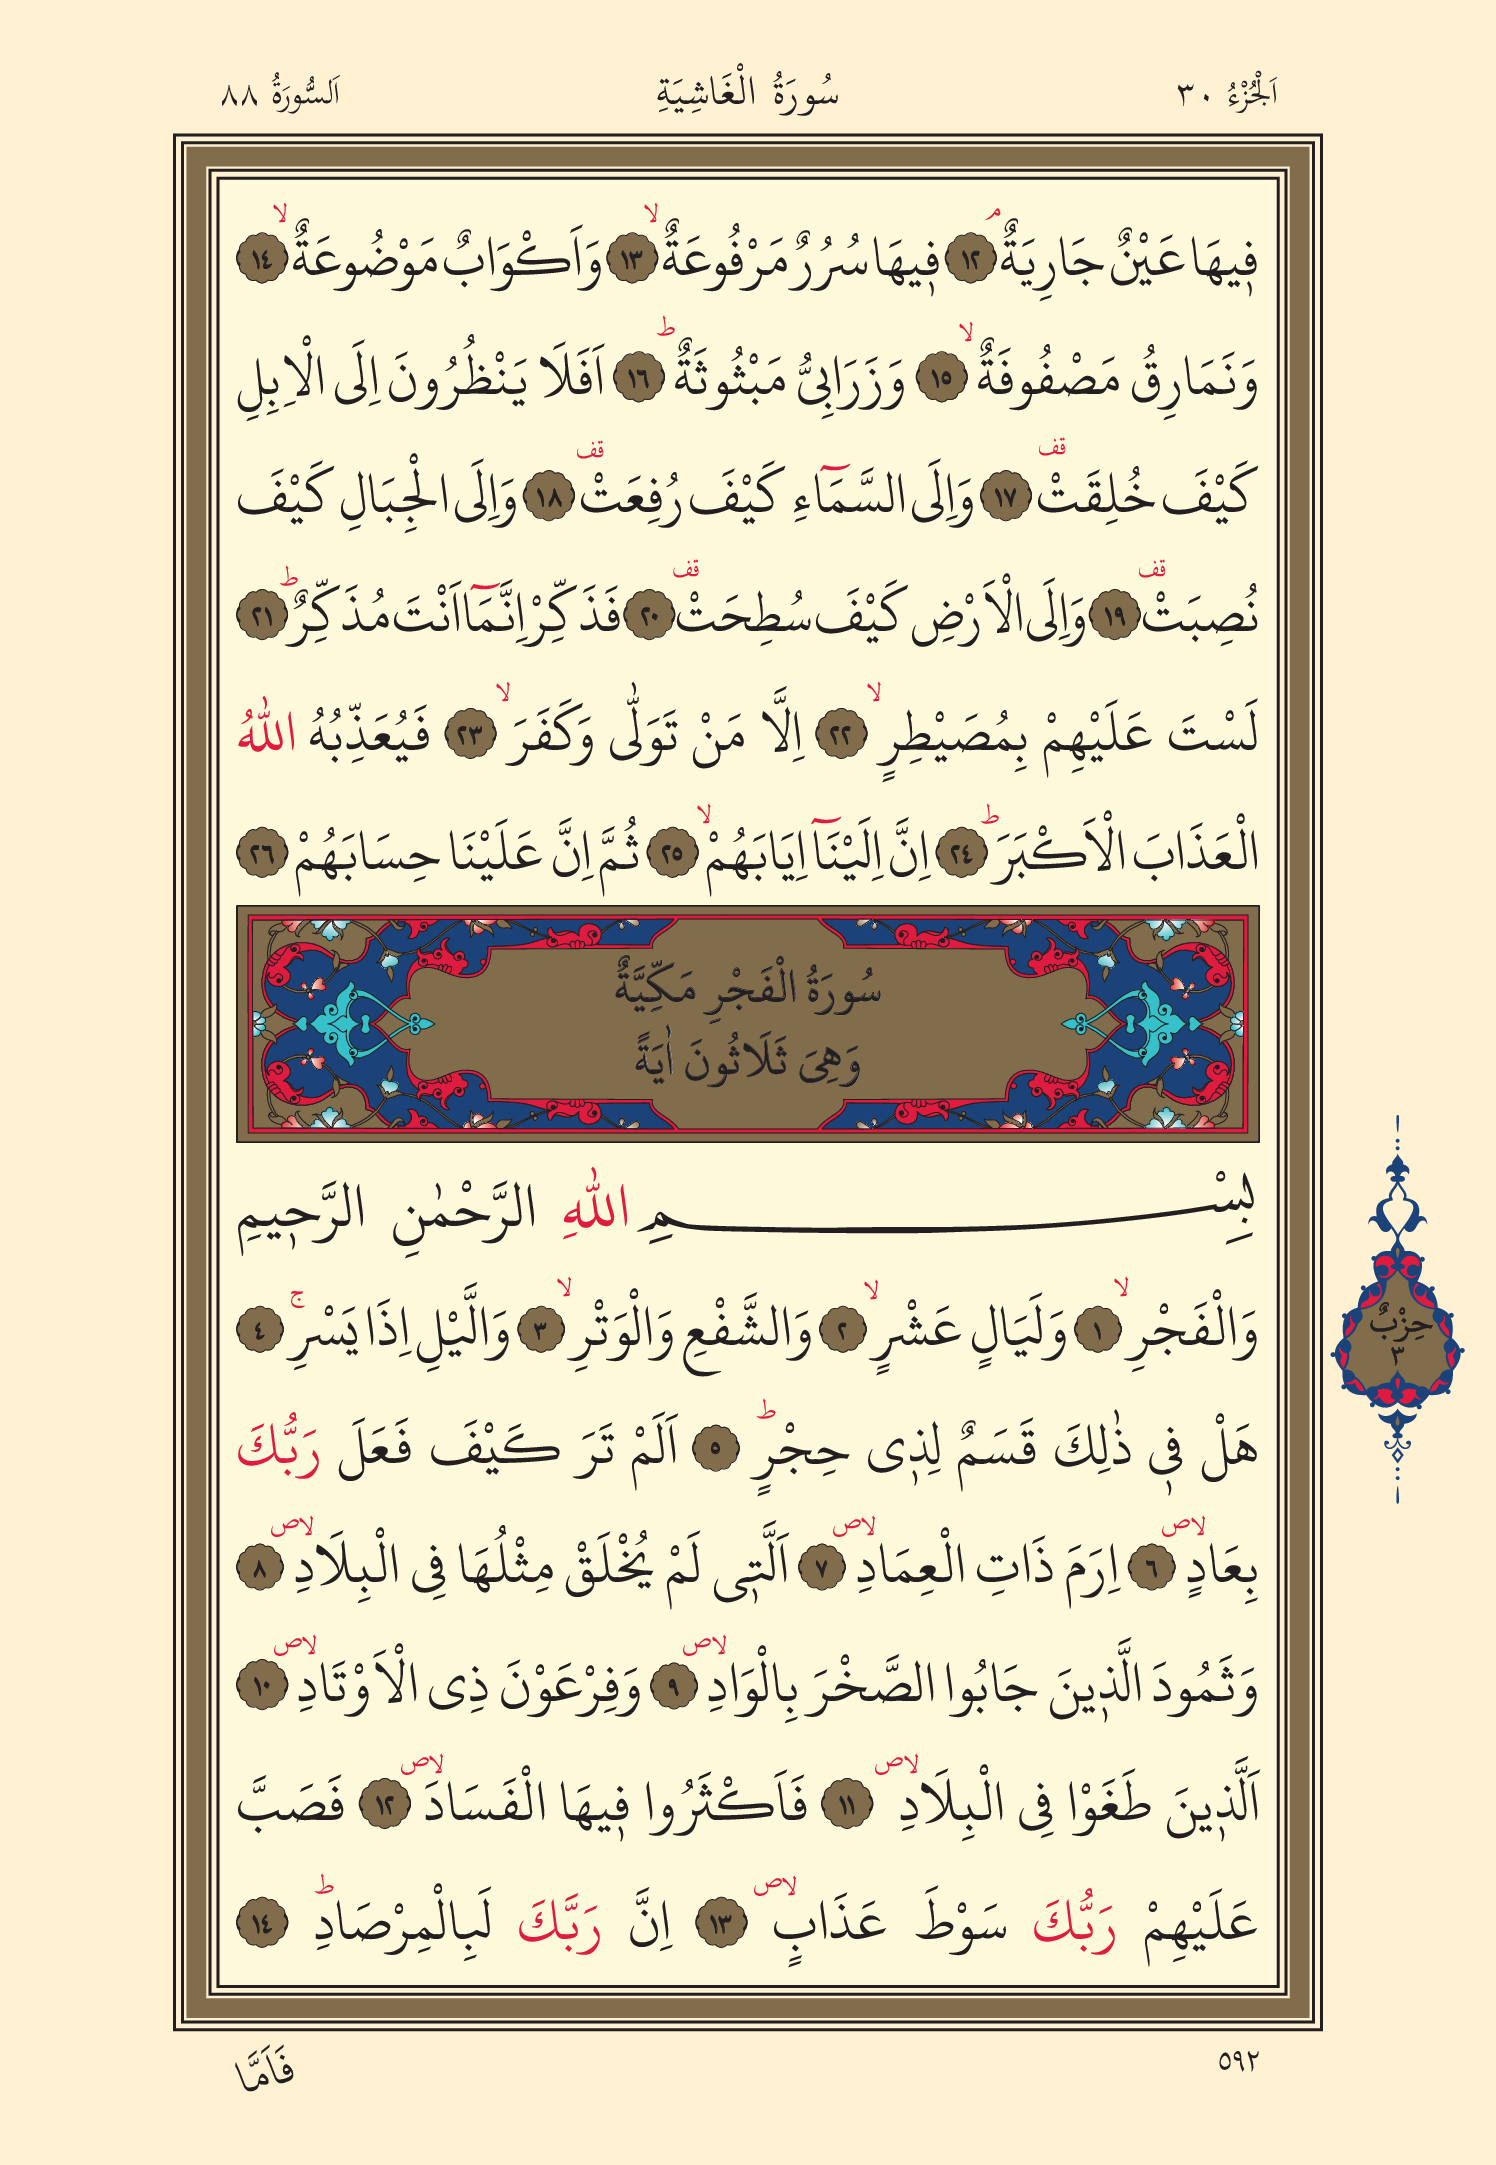 اَلْجُزْءُ ٣٠
سُورَةُ الْغَاشِيَةِ
اَلسُّورَةُ ٨٨
ف۪يهَا عَيْنٌ جَارِيَةٌۢ ﴿١٢﴾ ف۪يهَا سُرُرٌ مَرْفُوعَةٌۙ ﴿١٣﴾ وَاَكْوَابٌ مَوْضُوعَةٌۙ ﴿١٤﴾
وَنَمَارِقُ مَصْفُوفَةٌۙ ﴿١٥﴾ وَزَرَابِىُّ مَبْثُوثَةٌۜ ﴿١٦﴾ اَفَلَا يَنْظُرُونَ اِلَى الْاِبِلِ
كَيْفَ خُلِقَتْ۠ قف ﴿١٧﴾ وَاِلَى السَّمَٓاءِ كَيْفَ رُفِعَتْ قف ﴿١٨﴾ وَاِلَى الْجِبَالِ كَيْفَ
نُصِبَتْ قف ﴿١٩﴾ وَاِلَى الْاَرْضِ كَيْفَ سُطِحَتْ قف ﴿٢٠﴾ فَذَكِّرْ اِنَّمَٓا اَنْتَ مُذَكِّرٌۜ ﴿٢١﴾
لَسْتَ عَلَيْهِمْ بِمُصَيْطِرٍۙ ﴿٢٢﴾ اِلَّا مَنْ تَوَلّٰى وَكَفَرَۙ ﴿٢٣﴾ فَيُعَذِّبُهُ اللّٰهُ
الْعَذَابَ الْاَكْبَرَۜ ﴿٢٤﴾ اِنَّ اِلَيْنَٓا اِيَابَهُمْۙ ﴿٢٥﴾ ثُمَّ اِنَّ عَلَيْنَا حِسَابَهُمْ ﴿٢٦﴾
سُورَةُ الْفَجْرِ مَكِّيَّةٌ
وَهِىَ ثَلَاثُونَ اٰيَةً
بِسْمِ اللّٰهِ الرَّحْمٰنِ الرَّح۪يمِ
وَالْفَجْرِۙ ﴿١﴾ وَلَيَالٍ عَشْرٍۙ ﴿٢﴾ وَالشَّفْعِ وَالْوَتْرِۙ ﴿٣﴾ وَالَّيْلِ اِذَا يَسْرِۚ ﴿٤﴾
حِزْبٌ
٣
هَلْ ف۪ى ذٰلِكَ قَسَمٌ لِذ۪ى حِجْرٍۜ ﴿٥﴾ اَلَمْ تَرَ كَيْفَ فَعَلَ رَبُّكَ
بِعَادٍۙ ص ﴿٦﴾ اِرَمَ ذَاتِ الْعِمَادِۙ ص ﴿٧﴾ اَلَّت۪ى لَمْ يُخْلَقْ مِثْلُهَا فِى الْبِلَادِۙ ص ﴿٨﴾
وَثَمُودَ الَّذ۪ينَ جَابُوا الصَّخْرَ بِالْوَادِۙ ص ﴿٩﴾ وَفِرْعَوْنَ ذِى الْاَوْتَادِۙ ص ﴿١٠﴾
اَلَّذ۪ينَ طَغَوْا فِى الْبِلَادِۙ ص ﴿١١﴾ فَاَكْثَرُوا ف۪يهَا الْفَسَادَۙ ص ﴿١٢﴾ فَصَبَّ
عَلَيْهِمْ رَبُّكَ سَوْطَ عَذَابٍۙ ص ﴿١٣﴾ اِنَّ رَبَّكَ لَبِالْمِرْصَادِۜ ﴿١٤﴾
٥٩٢
فَاَمَّا